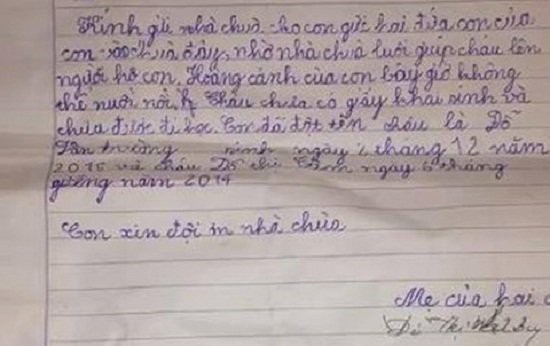 Kính gửi nhà chùa cho con gửi hai đứa con của
con vào chùa đây, nhờ nhà chùa nuôi giúp cháu lên
người hộ con. Hoàng cảnh của con bây giờ không
thể nuôi nổi cháu chưa có giấy khai sinh và
chưa được đi học. Con đã đặt tên cháu là Đỗ
sinh ngày tháng 12 năm
và cháu Đỗ thị ngày 6 tháng
giêng năm 2014
Con xin đội ơn nhà chùa
Mẹ của hai
Thị